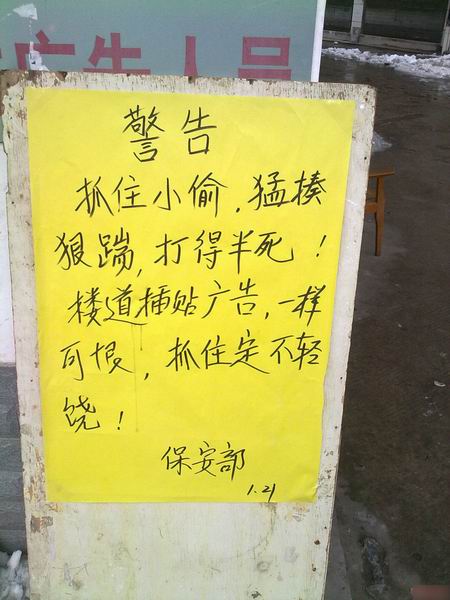 广告人员
警告
抓住小偷,猛揍
狠踹,打得半死!
楼道插贴广告,一样
可恨,抓住定不轻
饶!
保安部
1.21